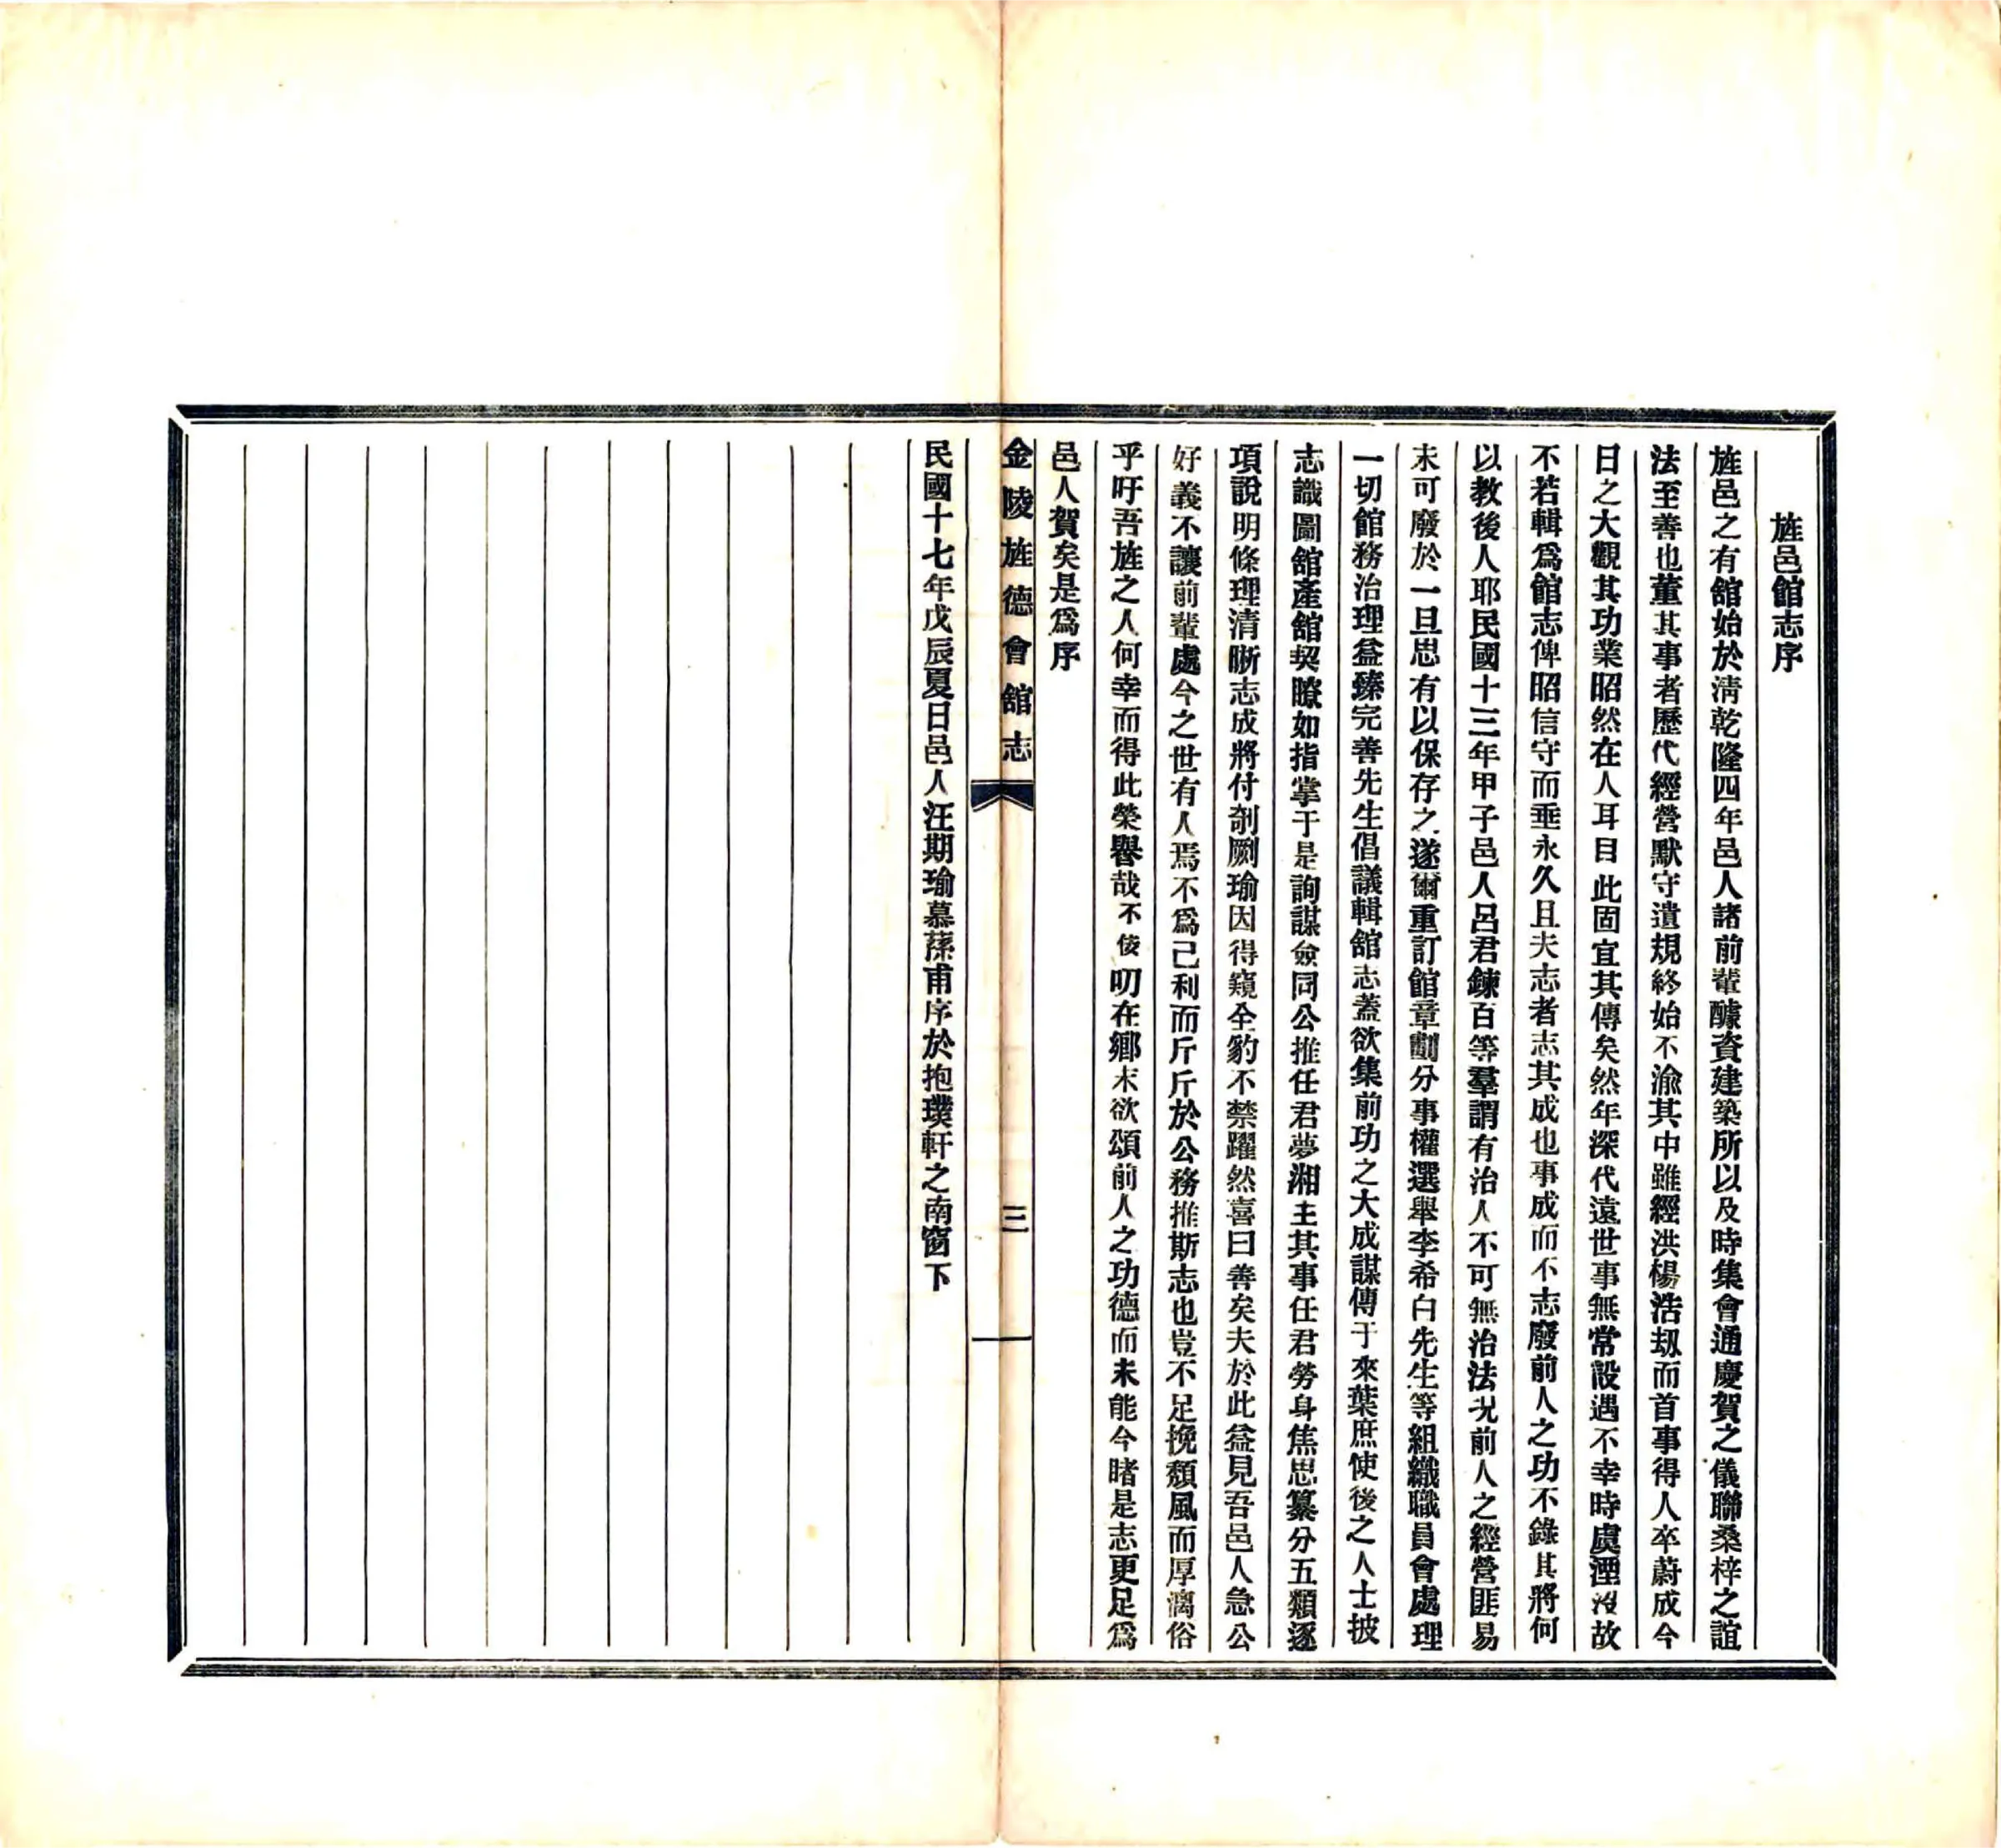 旌邑館志序
旌邑之有舘始於淸乾隆四年邑人諸前輩醵資建築所以及時集會通慶賀之儀聯桑梓之誼
法至善也董其事者歷代經營默守遺規終始不渝其中雖經洪楊浩刼而首事得人卒蔚成今
日之大觀其功業昭然在人耳目此固宜其傳矣然年深代遠世事無常設遇不幸時虞湮沒故
不若輯爲館志俾昭信守而垂永久且夫志者志其成也事成而不志廢前人之功不錄其將何
以敎後人耶民國十三年甲子邑人呂君鍊百等羣謂有治人不可無治法況前人之經營匪易
未可廢於一旦思有以保存之遂爾重訂館章劃分事權選舉李希白先生等組織職員會處理
一切館務治理益臻完善先生倡議輯舘志蓋欲集前功之大成謀傳于來葉庶使後之人士披
志識圖舘產舘契瞭如指掌于是詢謀僉同公推任君夢湘主其事任君勞身焦思纂分五類逐
項說明條理清晰志成將付剞劂瑜因得窺全豹不禁躍然喜曰善矣夫於此益見吾邑人急公
好義不讓前輩處今之世有人焉不爲己利而斤斤於公務推斯志也豈不足挽頽風而厚漓俗
乎吁吾旌之人何幸而得此榮譽哉不佞叨在鄉末欲頌前人之功德而未能今睹是志更足爲
邑人賀矣是爲序
金陵旌德會舘志
三
民國十七年戊辰夏日邑人汪期瑜慕蓀甫序於抱璞軒之南窗下